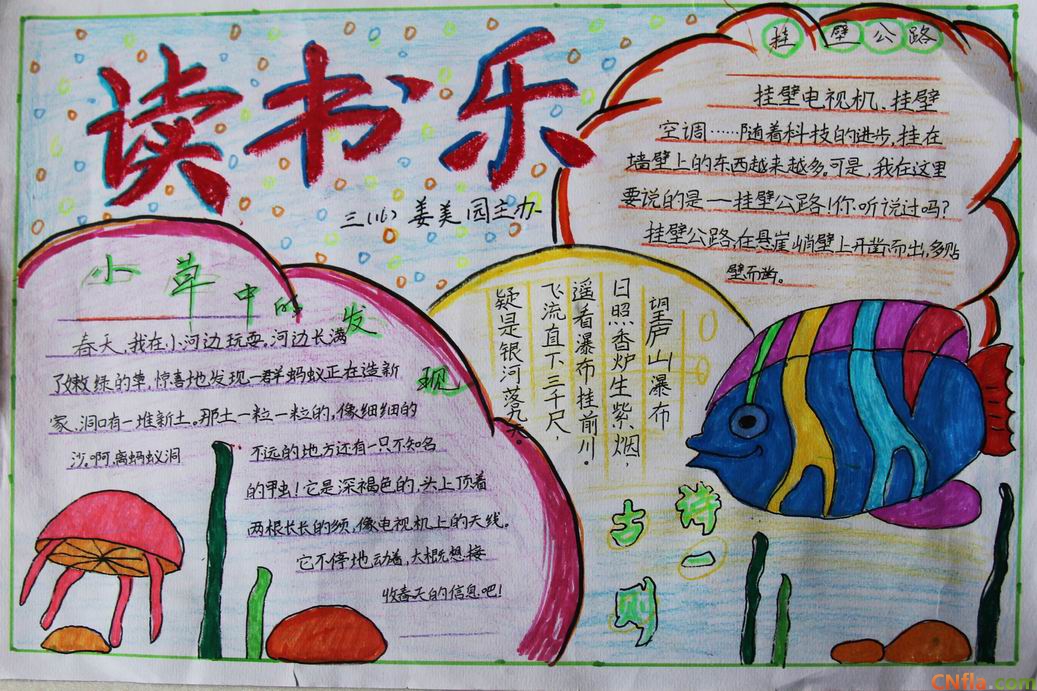 读书乐
三(16)姜美园主办
挂壁公路
挂壁电视机、挂壁
空调……随着科技的进步,挂在
墙壁上的东西越来越多。可是,我在这里
要说的是——挂壁公路!你听说过吗?
挂壁公路,在悬崖峭壁上开凿而出,多贴
壁而凿。
小草中的发现
春天,我在小河边玩耍,河边长满
了嫩绿的草,惊喜地发现一群蚂蚁正在造新
家,洞口有一堆新土。那土一粒一粒的,像细细的
沙。啊,离蚂蚁洞
不远的地方还有一只不知名
的甲虫!它是深褐色的,头上顶着
两根长长的须,像电视机上的天线。
它不停地动着,大概想接
收春天的信息吧!
望庐山瀑布
日照香炉生紫烟,
遥看瀑布挂前川。
飞流直下三千尺,
疑是银河落九天。
古诗一则
CNfla.com